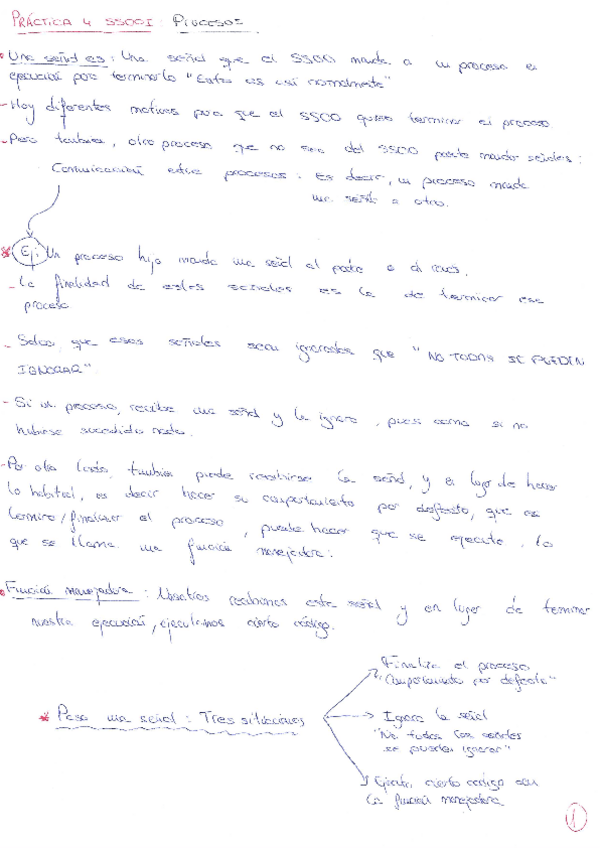 PRÁCTICA 4 SSOOI: PROCESOS
Una señal es: Una señal que el SSOO manda a un proceso en
ejecución para terminarlo "Esto es así normalmente"
- Hay diferentes motivos para que el SSOO quiera terminar el proceso.
- Pero también, otro proceso que no sea del SSOO puede mandar señales:
Comunicación entre procesos: Es decir, un proceso manda
una señal a otro.
* Ej: Un proceso hijo manda una señal al padre o al revés.
- La finalidad de estas señales es la de terminar ese
proceso
- Salvo, que esas señales sean ignoradas que "NO TODAS SE PUEDEN
IGNORAR".
- Si un proceso, recibe una señal y la ignora, pues como si no
hubiese sucedido nada.
- Por otro lado, también puede recibirse la señal, y en lugar de hacer
lo habitual, es decir hacer su comportamiento por defecto, que es
terminar/finalizar el proceso, puede hacer que se ejecute, lo
que se llama una función manejadora:
Función manejadora: Nosotros recibimos esta señal y en lugar de terminar
nuestra ejecución, ejecutamos cierto código.
Finaliza el proceso
"Comportamiento por defecto"
* Pasa una señal: Tres situaciones
Ignora la señal
"No todas las señales
se pueden ignorar"
Ejecuta cierto código con
la función manejadora
1